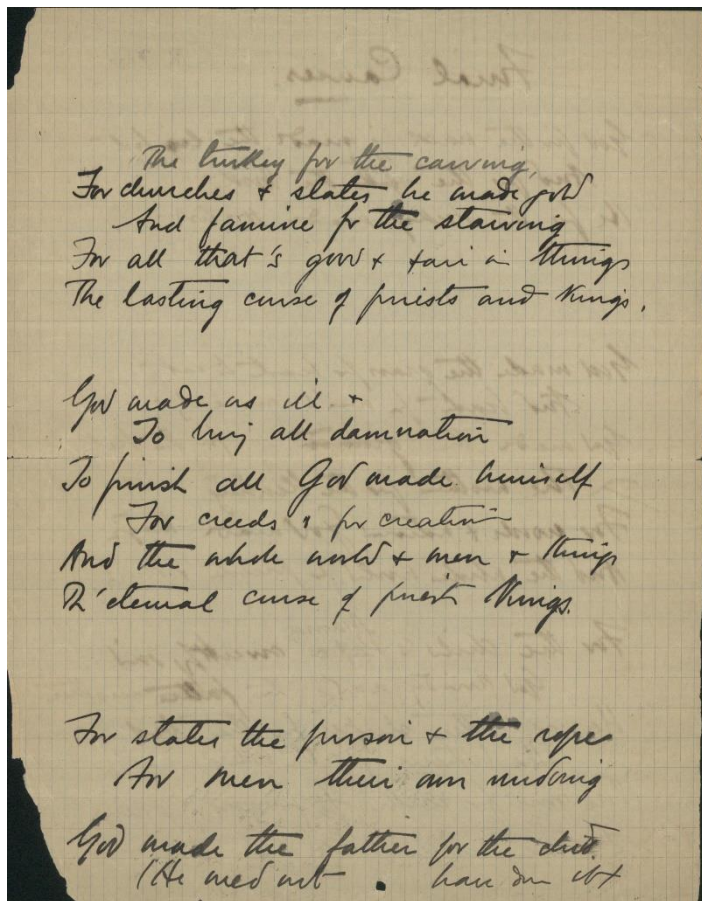 The turkey for the carving,
For churches & states he made gold
And famine for the starving
For all that's good & fair in things
The lasting curse of priests and Kings.
God made us ill &
To bring all damnation
To finish all God made himself
For creeds & for creation
And the whole world & men & things
Th'eternal curse of priests Kings.
For states the prison & the rope
For men their own undoing
God made the father for the child
(He need not have done it